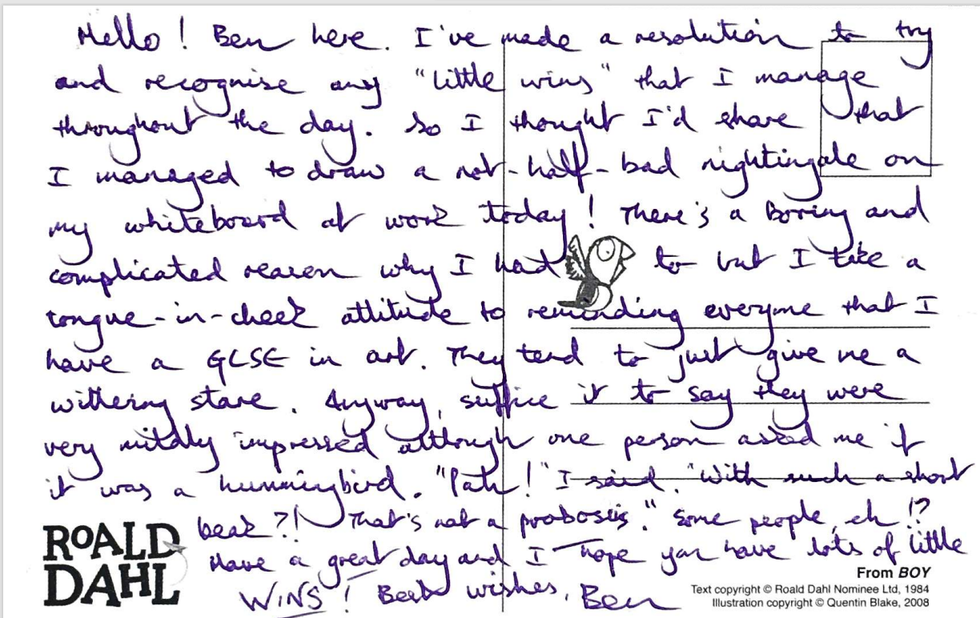 Hello! Ben here. I've made a resolution to try
and recognise any "little wins" that I manage
throughout the day. So I thought I'd share that
I managed to draw a not-half-bad nightingale on
my whiteboard at work today! There's a Boring and
complicated reason why I had to but I take a
tongue-in-cheek attitude to reminding everyone that I
have a GCSE in art. They tend to just give me a
withering stare. Anyway, suffice it to say they were
very mildly impressed although one person asked me if
it was a hummingbird. "Pah!" I said. "With such a short
beak?! That's not a proboscis." Some people, eh!?
Have a great day and I hope you have lots of little
WINS! Best wishes, Ben
ROALD
DAHL
From BOY
Text copyright © Roald Dahl Nominee Ltd, 1984
Illustration copyright © Quentin Blake, 2008